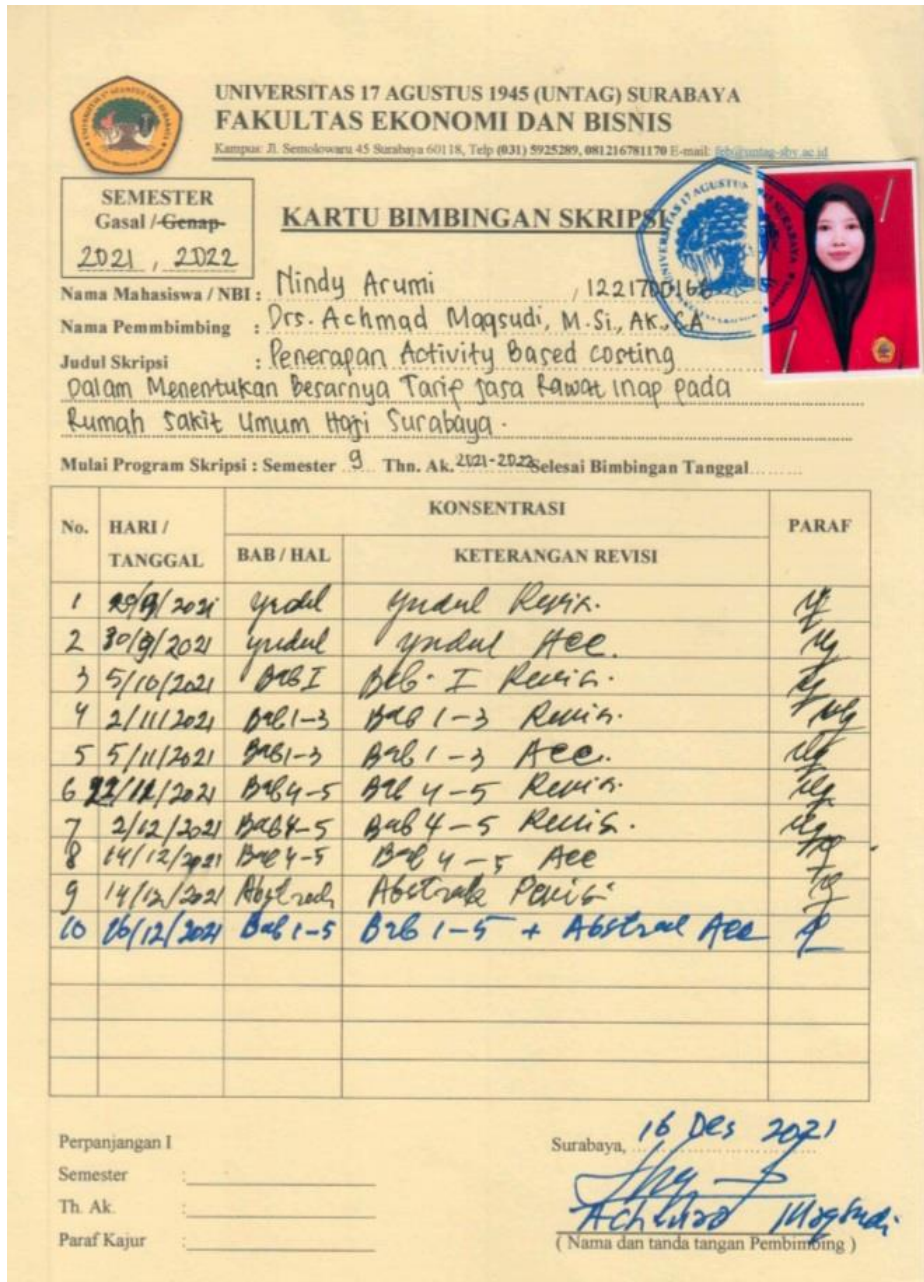 UNIVERSITAS 17 AGUSTUS 1945 (UNTAG) SURABAYA
FAKULTAS EKONOMI DAN BISNIS
Kampus: Jl. Semolowaru 45 Surabaya 60118, Telp (031) 5925289, 081216781170 E-mail: feb@untag-sby.ac.id
SEMESTER
Gasal / Genap
2021 , 2022
KARTU BIMBINGAN SKRIPSI
Nama Mahasiswa / NBI : Nindy Arumi , 1221700166
Nama Pemmbimbing : Drs. Achmad Maqsudi, M.Si., AK., CA
Judul Skripsi : Penerapan Activity Based costing
Dalam Menentukan Besarnya Tarip Jasa Rawat Inap pada
Rumah Sakit Umum Haji Surabaya.
Mulai Program Skripsi : Semester 9 Thn. Ak. 2021-2022 Selesai Bimbingan Tanggal
No. HARI / TANGGAL KONSENTRASI PARAF
BAB / HAL KETERANGAN REVISI
1 /9/2021 Judul Judul Revisi.
2 30/9/2021 Judul Judul Acc.
3 5/10/2021 Bab I Bab. I Revisi.
4 2/11/2021 Bab 1-3 Bab 1-3 Revisi.
5 5/11/2021 Bab 1-3 Bab 1-3 Acc.
6 Bab 4-5 Bab 4-5 Revisi.
7 2/12/2021 Bab 4-5 Bab 4-5 Revisi.
8 14/12/2021 Bab 4-5 Bab 4-5 Acc
9 14/12/2021 Abstrak Abstrak Revisi
10 16/12/2021 Bab 1-5 Bab 1-5 + Abstrak Acc
Perpanjangan I
Semester :
Th. Ak. :
Paraf Kajur :
Surabaya, 16 Des 2021
Achmad Maqsudi
( Nama dan tanda tangan Pembimbing )